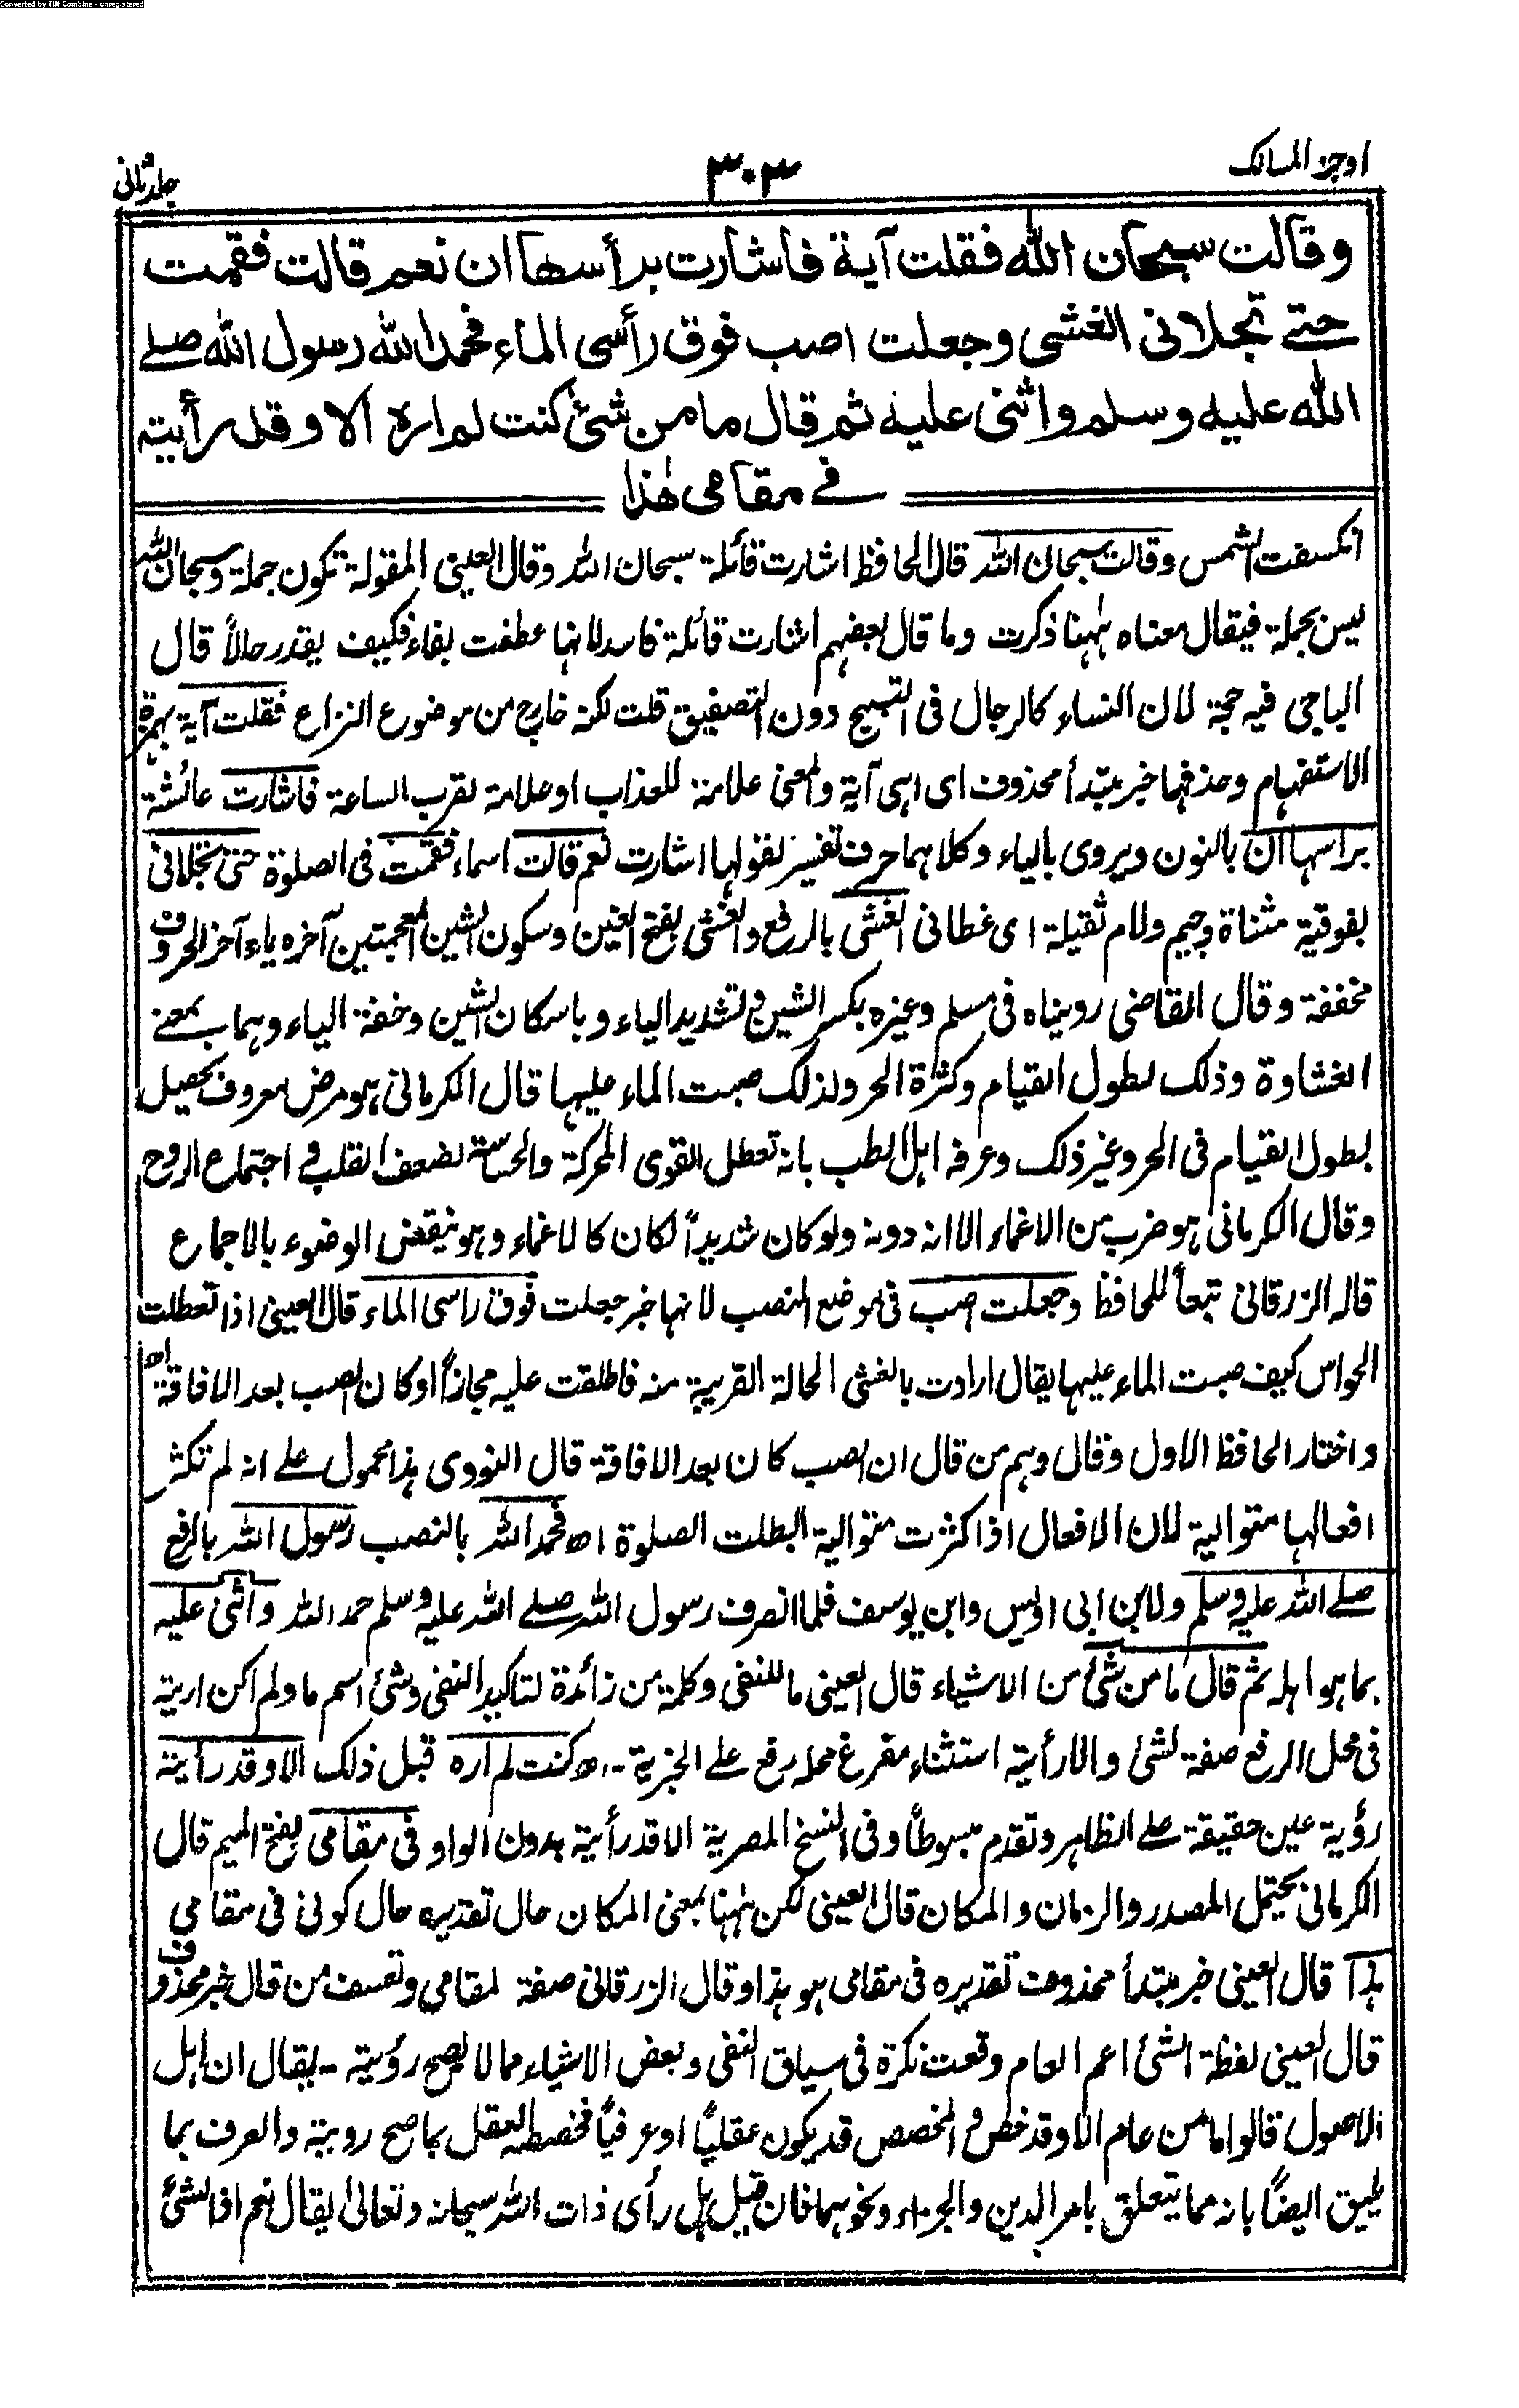 Converted by Tiff Combine - unregistered
اوجز المسالک
٣٠٣
جلد ثانی
وقالت سبحان الله فقلت آية فاشارت برأسها ان نعم قالت فقمت
حتے تجلانی الغشی وجعلت اصب فوق رأسی الماء فحمد الله رسول الله صلے
الله عليه وسلم واثنی عليه ثم قال ما من شئ كنت لم اره الا وقد رأيته
فے مقامی هذا
انكسفت الشمس وقالت سبحان الله قال الحافظ اشارت قائلة سبحان الله وقال العینی المقولة تكون جملة وسبحان الله
ليس بجملة فيقال معناه ههنا ذكرت وما قال بعضهم اشارت قائلة فاسد لانها عطفت بفاء فكيف يقدر حالاً قال
الباجی فيه حجة لان النساء كالرجال فی التسبيح دون التصفيق قلت لكنه خارج من موضوع النزاع فقلت آية بهمزة
الاستفهام وحذفها خبر مبتدأ محذوف ای اهی آية والمعنی علامة للعذاب او علامة لقرب الساعة فاشارت عائشة
براسها ان بالنون ويروی بالياء وكلاهما حرف تفسير لقولها اشارت نعم قالت اسماء فقمت فی الصلوة حتی تجلانی
بفوقية مثناة وجيم ولام ثقيلة ای غطانی الغشی بالرفع والغشی بفتح الغين وسكون الشين المعجمتين آخره ياء آخر الحروف
مخففة وقال القاضی رويناه فی مسلم وغيره بكسر الشين وتشديد الياء وباسكان الشين وخفة الياء وهما بمعنے
الغشاوة وذلك لطول القيام وكثرة الحر ولذلك صبت الماء عليها قال الكرمانی هو مرض معروف يحصل
بطول القيام فی الحر وغير ذلك وعرفه اهل الطب بانه تعطل القوی المحركة والحساسة لضعف القلب و اجتماع الروح
وقال الكرمانی هو ضرب من الاغماء الا انه دونه ولو كان شديداً لكان كالاغماء وهو ينقض الوضوء بالاجماع
قاله الزرقانی تبعاً للحافظ وجعلت اصب فی موضع النصب لانها خبر جعلت فوق راسی الماء قال العينی اذا تعطلت
الحواس كيف صبت الماء عليها يقال ارادت بالغشی الحالة القريبة منه فاطلقت عليه مجازاً او كان الصب بعد الافاقة اه
واختار الحافظ الاول وقال وهم من قال ان الصب كان بعد الافاقة قال النووی هذا محمول علے انه لم تكثر
افعالها متوالية لان الافعال اذا كثرت متوالية ابطلت الصلوة اه فحمد الله بالنصب رسول الله بالرفع
صلے الله عليه وسلم ولابن ابی اويس وابن يوسف فلما انصرف رسول الله صلے الله عليه وسلم حمد الله واثنی عليه
بما هو اهله ثم قال ما من شئ من الاشياء قال العينی ما للنفی وكلمة من زائدة لتاكيد النفی وشئ اسم ما ولم اكن اريته
فی محل الرفع صفة لشئ والا رأيته استثناء مفرغ محله رفع علے الخبرية - اه كنت لم اره قبل ذلك الا وقد رأيته
رؤية عين حقيقة علے الظاهر وتقدم مبسوطاً وفی النسخ المصرية الا قد رأيته بدون الواو فی مقامی بفتح الميم قال
الكرمانی يحتمل المصدر والزمان والمكان قال العينی لكن ههنا بمعنی المكان حال تقديره حال كونی فی مقامی
هذا قال العينی خبر مبتدأ محذوف تقديره فی مقامی هو هذا وقال الزرقانی صفة لمقامی وتعسف من قال خبر محذوف
قال العينی لفظة الشئ اعم العام وقعت نكرة فی سياق النفی وبعض الاشياء مما لا يصح رؤيته - يقال ان اهل
الاصول قالوا ما من عام الا وقد خص والمخصص قد يكون عقلياً او عرفياً فخصصه العقل بما صح رويته والعرف بما
يليق ايضاً بانه مما يتعلق بامر الدين والجزاء ونحوهما فان قيل هل رأی ذات الله سبحانه وتعالیٰ يقال نعم اذ الشئ